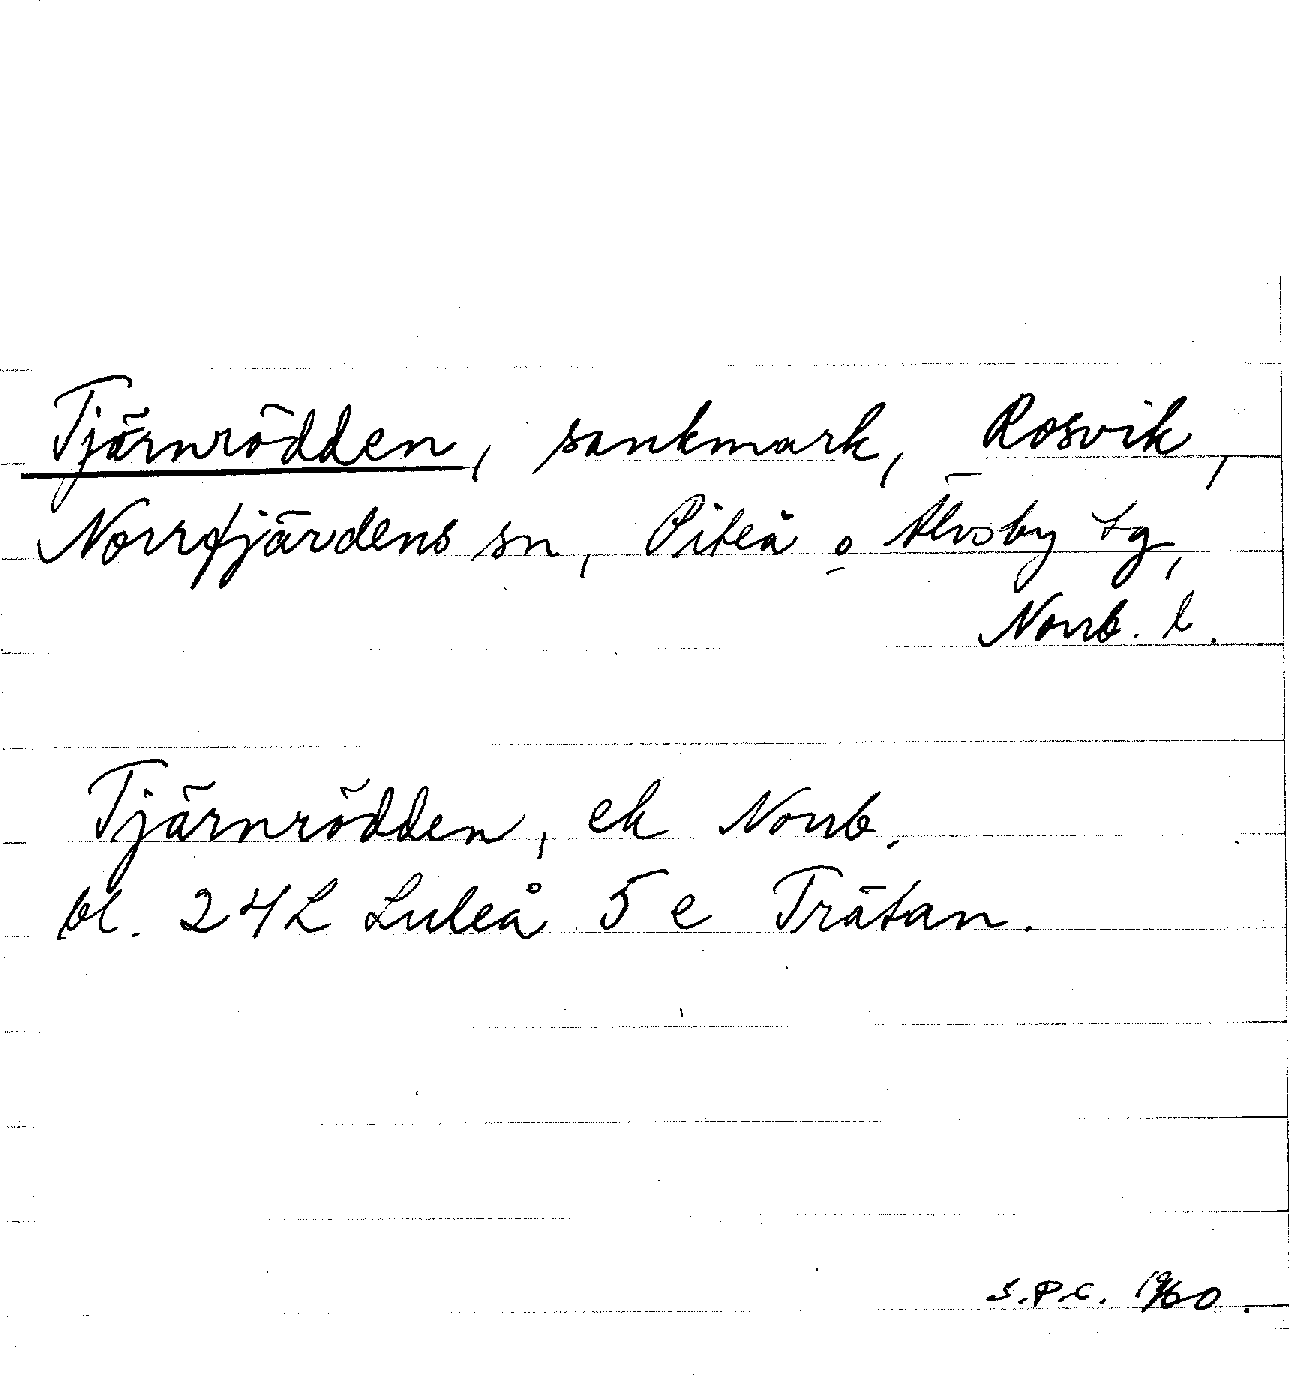 Tjärnrödden, sankmark, Rosvik,
Norrfjärdens sn, Piteå o Älvsby tg,
Norrb. l.
Tjärnrödden, ek Norrb.
bl. 24L Luleå 5 e Trätan.
S.P.C. 1960.